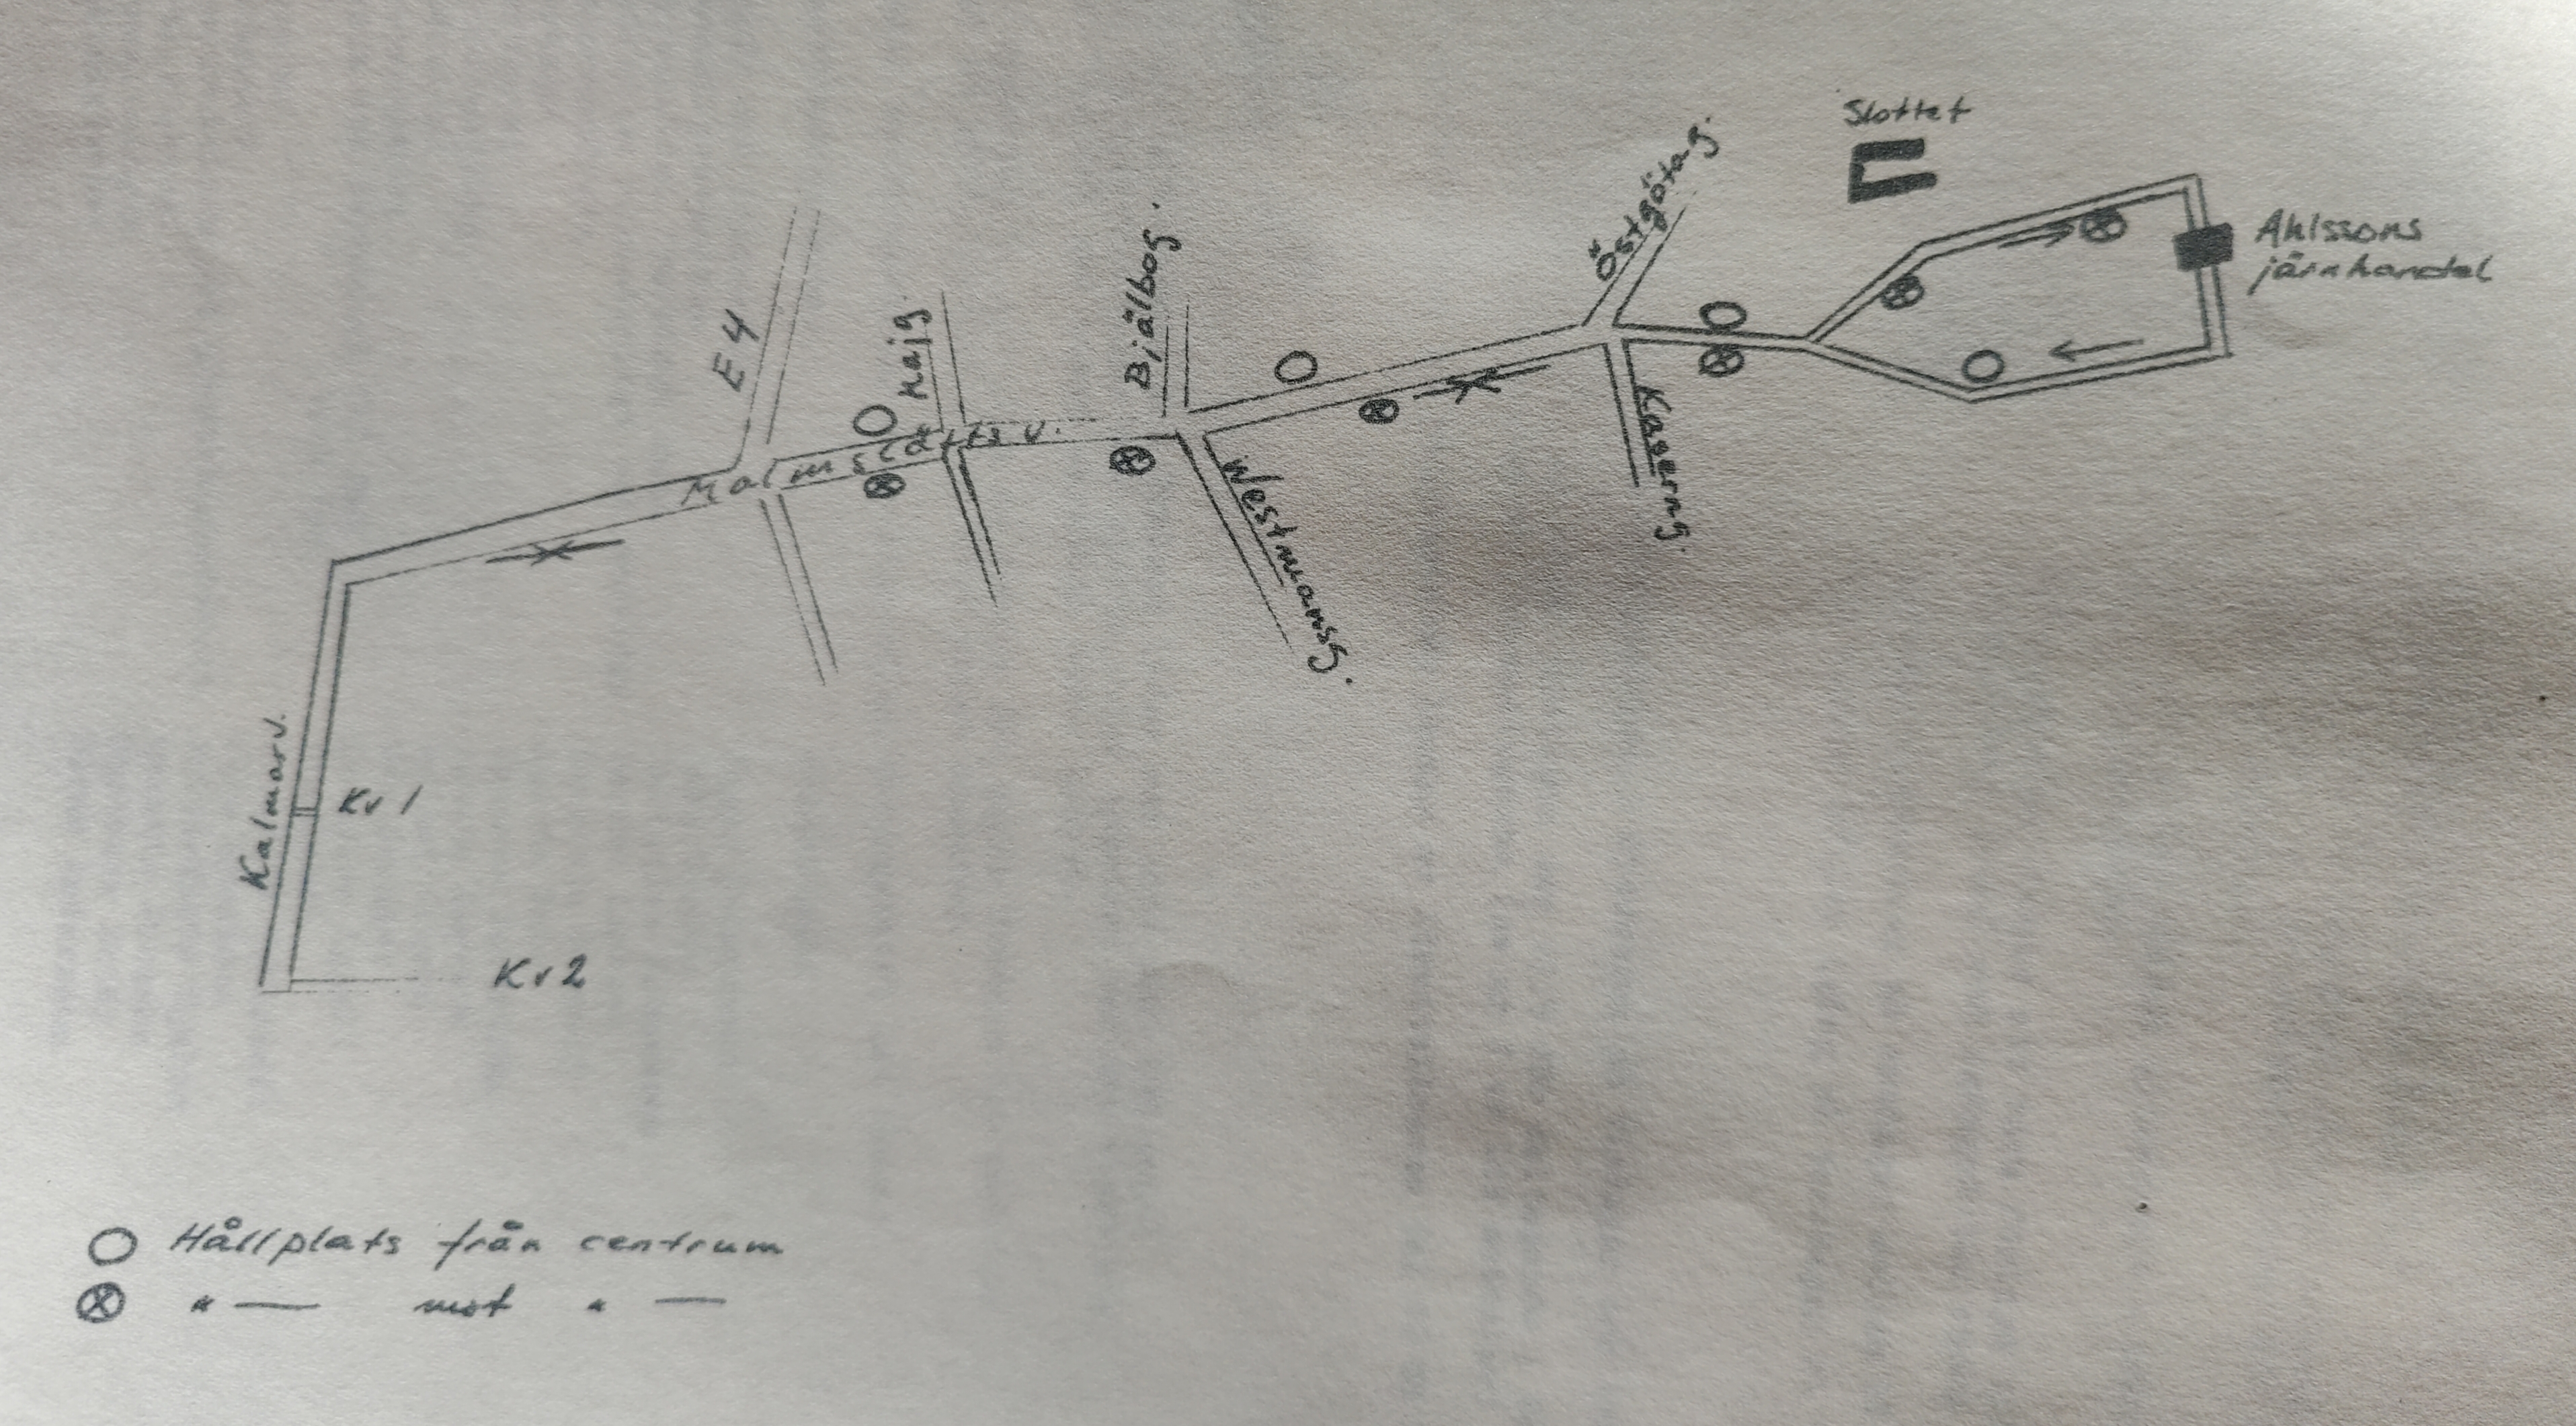 Slottet
Östgötag.
Ahlssons
järnhandel
Bjälbog.
E4
Majg.
Malmslätts v.
Kaserng.
Westmansg.
Kalmarv.
Kv 1
Kv 2
Hållplats från centrum
" — mot " —